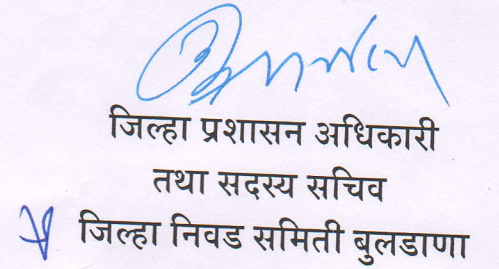 जिल्हा प्रशासन अधिकारी
तथा सदस्य सचिव
जिल्हा निवड समिती बुलडाणा